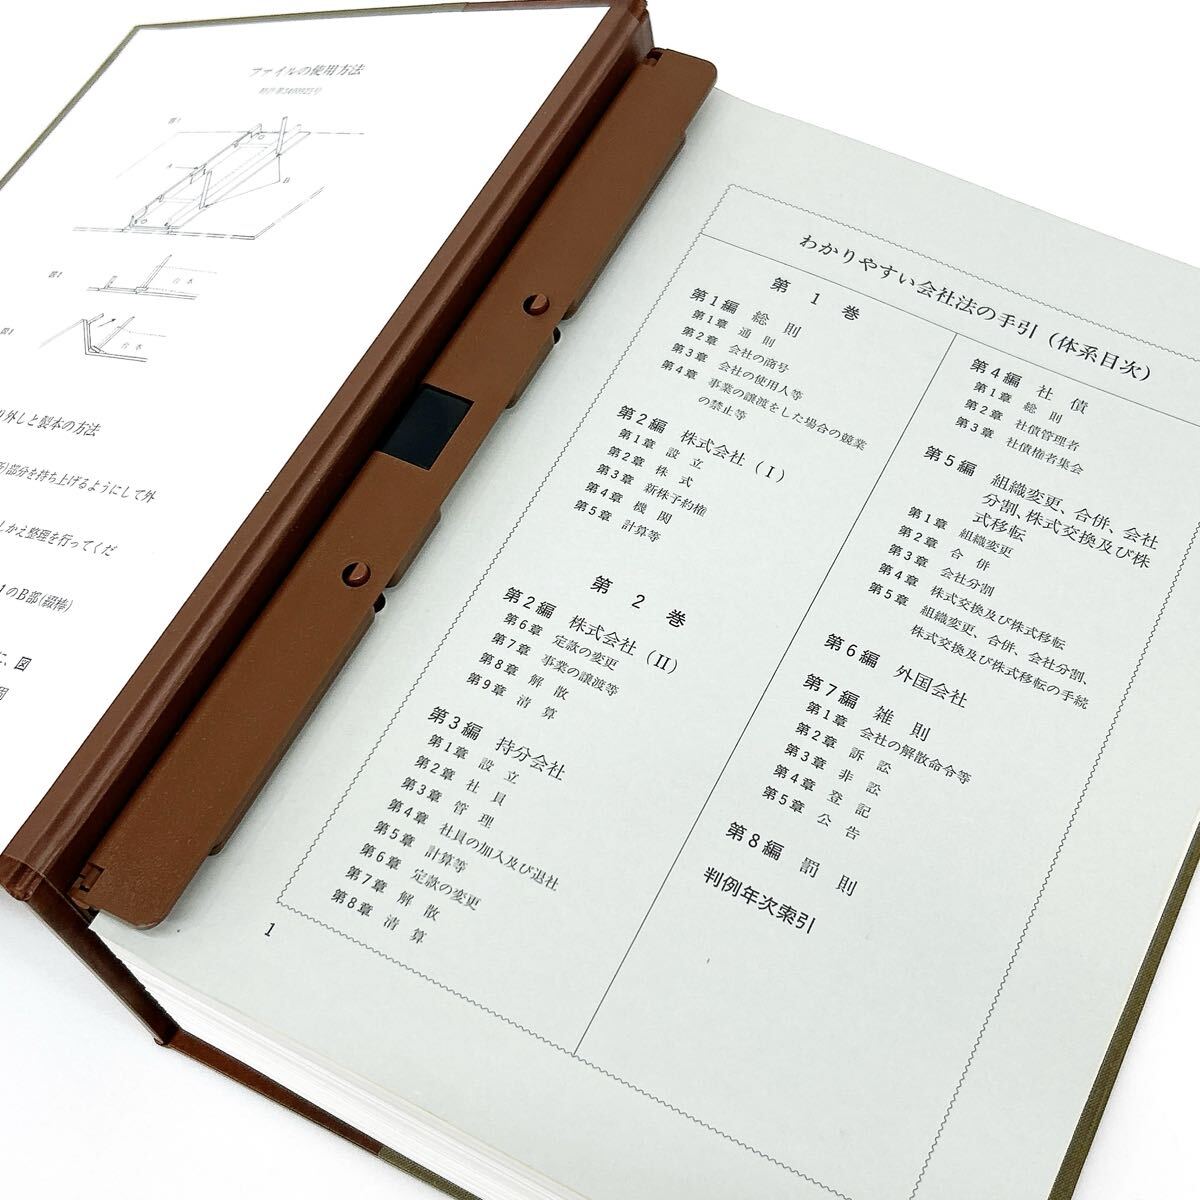 ファイルの使用方法
図1
A
B
図2
台本
図3
台本
外しと製本の方法
部分を持ち上げるようにして外
かえ整理を行ってくだ
のB部(綴棒)
に、図
わかりやすい会社法の手引(体系目次)
第1巻
第1編 総則
第1章 通則
第2章 会社の商号
第3章 会社の使用人等
第4章 事業の譲渡をした場合の競業
の禁止等
第2編 株式会社(I)
第1章 設立
第2章 株式
第3章 新株予約権
第4章 機関
第5章 計算等
第2巻
第2編 株式会社(II)
第6章 定款の変更
第7章 事業の譲渡等
第8章 解散
第9章 清算
第3編 持分会社
第1章 設立
第2章 社員
第3章 管理
第4章 社員の加入及び退社
第5章 計算等
第6章 定款の変更
第7章 解散
第8章 清算
第4編 社債
第1章 総則
第2章 社債管理者
第3章 社債権者集会
第5編 組織変更、合併、会社
分割、株式交換及び株
式移転
第1章 組織変更
第2章 合併
第3章 会社分割
第4章 株式交換及び株式移転
第5章 組織変更、合併、会社分割、
株式交換及び株式移転の手続
第6編 外国会社
第7編 雑則
第1章 会社の解散命令等
第2章 訴訟
第3章 非訟
第4章 登記
第5章 公告
第8編 罰則
判例年次索引
1